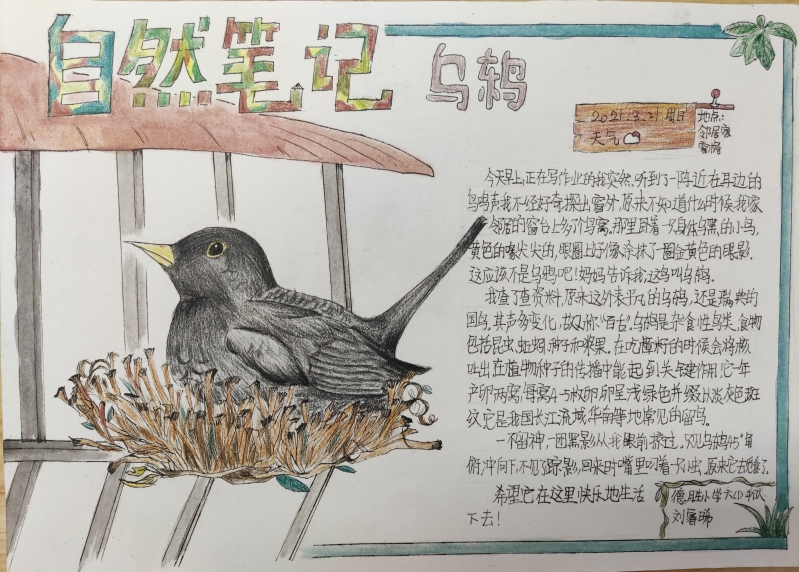 自然笔记
乌鸫
2021.3.21 周日
天气
地点:
邻居家
窗搪
今天早上,正在写作业的我突然听到了一阵近在耳边的
鸟鸣声我不经好奇探出窗外,原来不知道什么时候,我家
邻居的窗台上多了个鸟窝。那里卧着一只身体乌黑的小鸟,
黄色的喙尖尖的,眼圈上好像涂抹了一圈金黄色的眼影.
这应该不是乌鸦吧!妈妈告诉我,这鸟叫乌鸫.
我查了查资料,原来这外表平凡的乌鸫,还是瑞典的
国鸟,其声多变化,故又称"百舌".乌鸫是杂食性鸟类,食物
包括昆虫、蚯蚓、种子和浆果。在吃 种子的时候会将核
吐出,在植物种子的传播中能起到关键作用.它一年
产卵两窝,每窝4-5枚卵,卵呈浅绿色并缀以淡灰色斑
纹,它是我国长江流域、华南等地常见的留鸟。
一不留神,一团黑影从我眼前掠过,只见乌鸫45°角
俯冲向下,不见了踪影,回来时嘴里叼着一只小虫,原来它去觅食了.
希望它在这里快乐地生活
下去!
德胜小学六(1)中队
刘